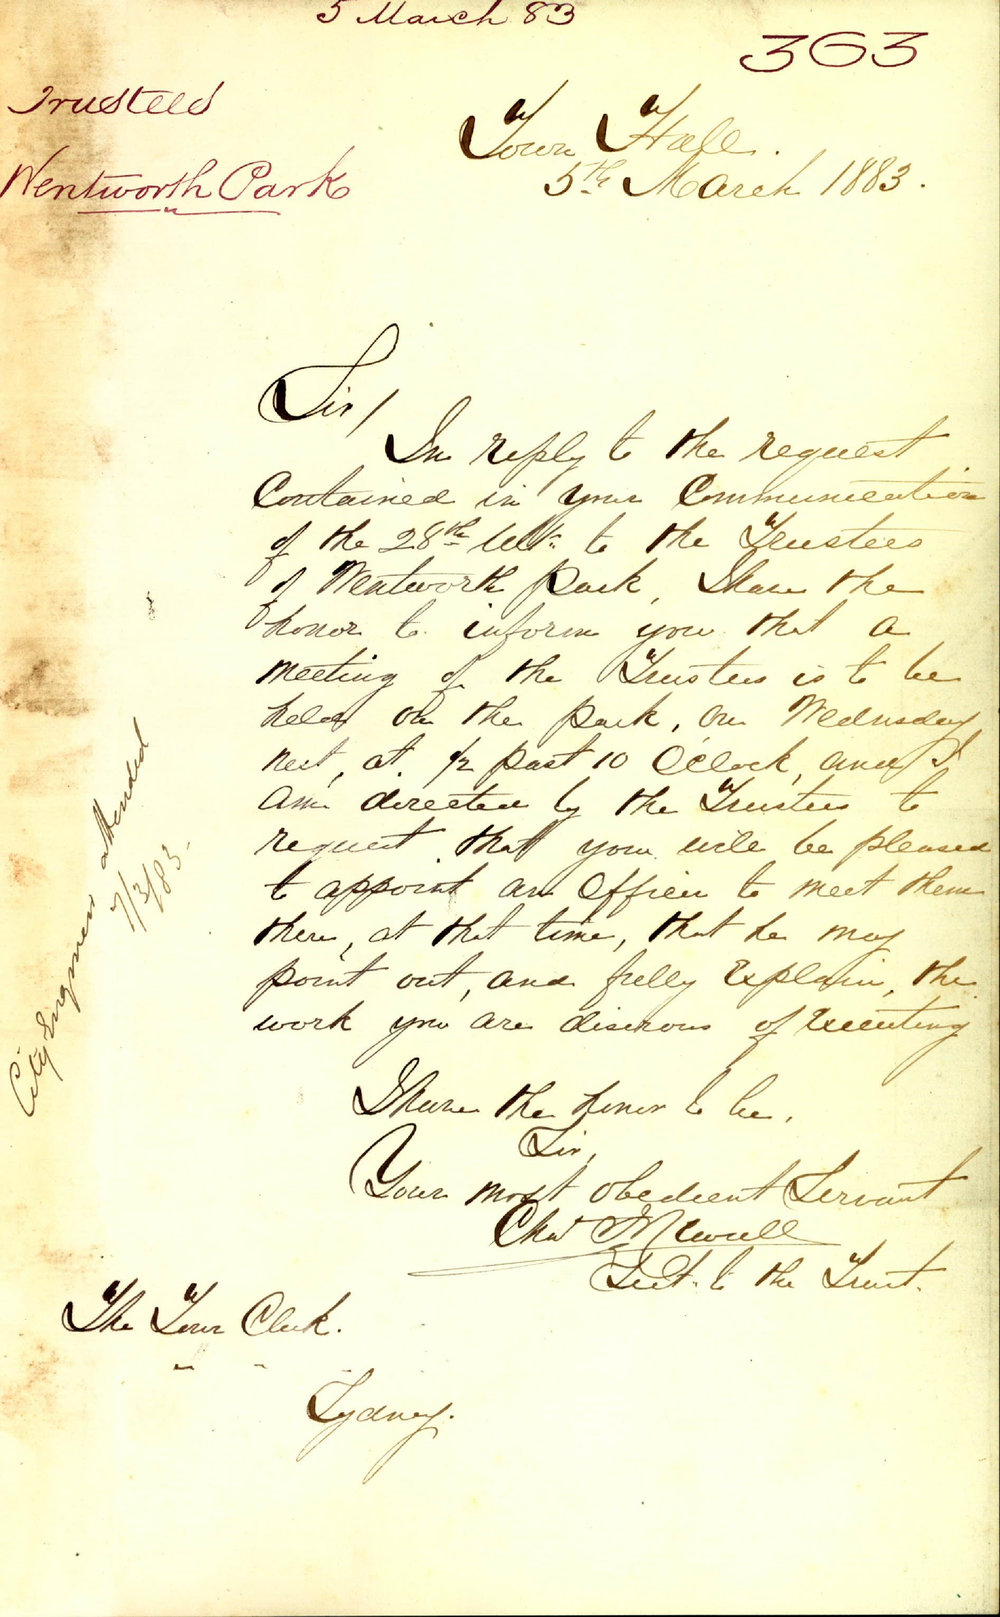 5 March 83
363
Trustees
Wentworth Park
Town Hall.
5th March 1883.
Sir/
In reply to the request
Contained in your Communication
of the 28th Ult. to the Trustees
of Wentworth Park, I have the
honor to inform you that a
meeting of the Trustees is to be
held on the Park, on Wednesday
next, at 1/2 past 10 O'Clock, and I
am directed by the Trustees to
request that you will be pleased
to appoint an Officer to meet them
there, at that time, that he may
point out, and fully Explain, the
work you are disirous of Executing
I have the honor to be,
Sir,
Your most obedient Servant
Chas
Sect. to the Trust.
The Town Clerk.
Sydney.
City Engineers attended
7/3/83.